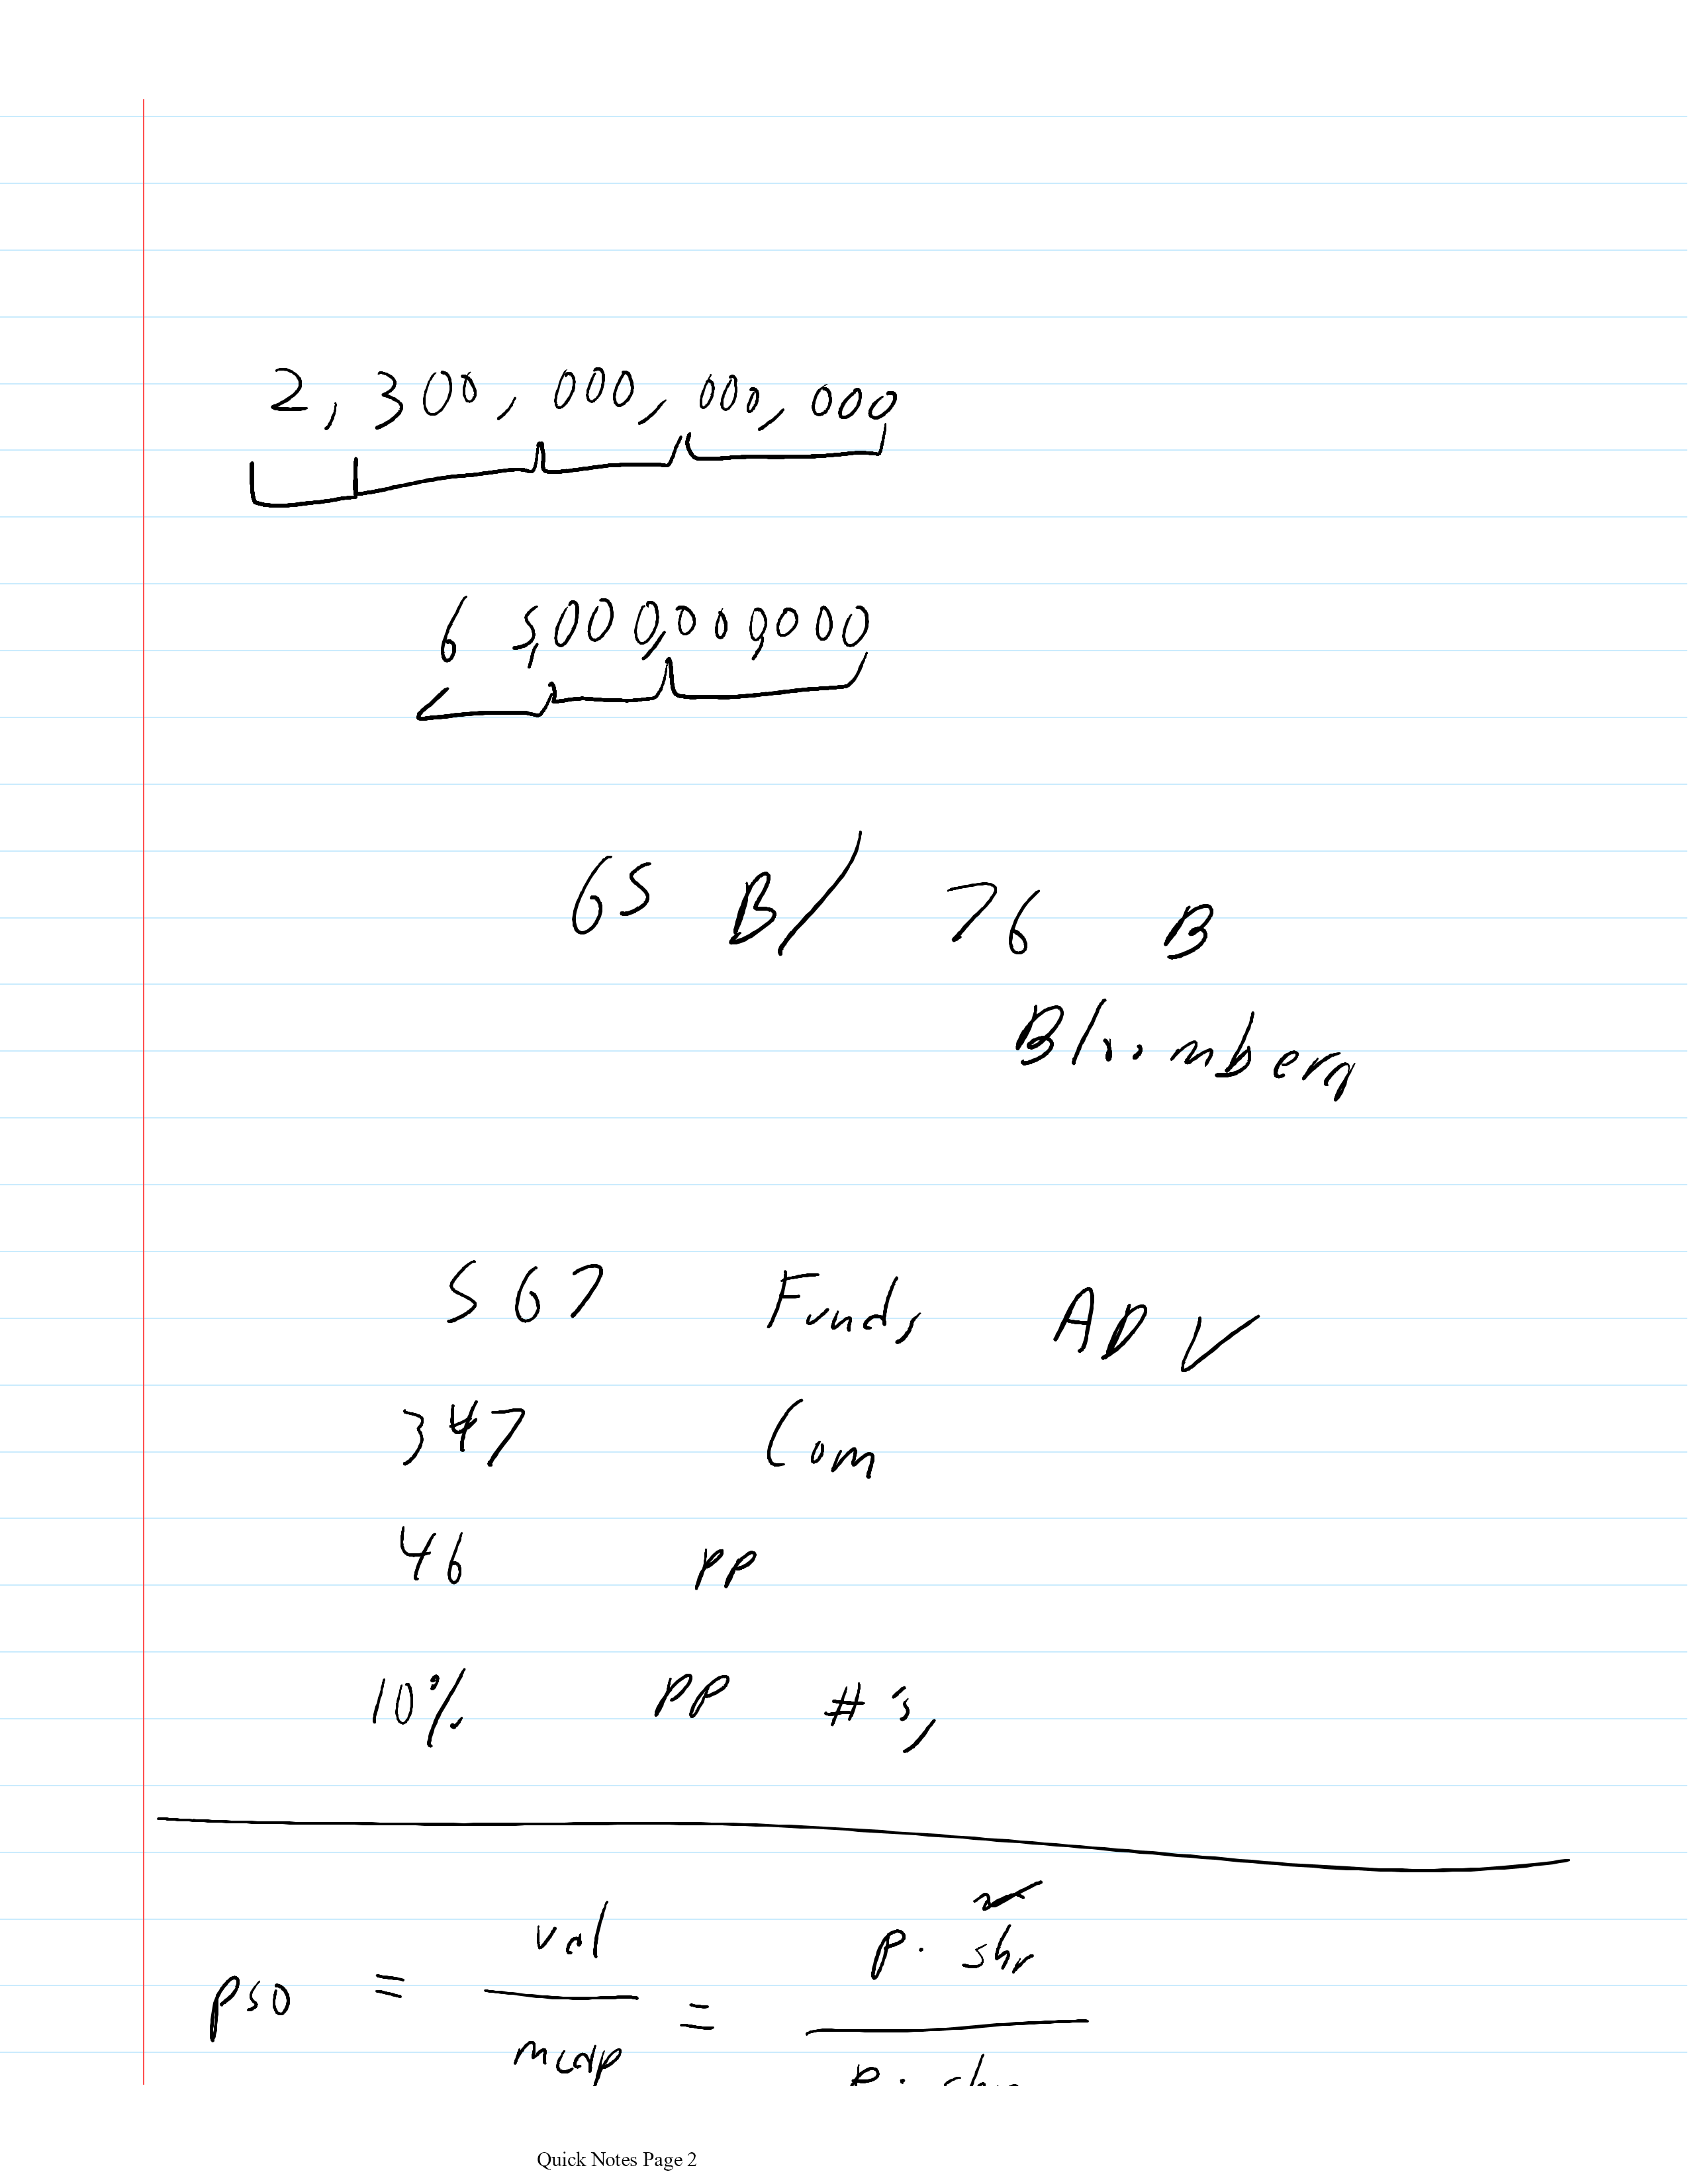 2,300,000,000,000
65,000,000,000
65 B/ 76 B
Bloomberg
567 Funds ADV
347 Com
46 PP
10% PP #'s,
val p. shr
pso = =
mcap p. shr
Quick Notes Page 2